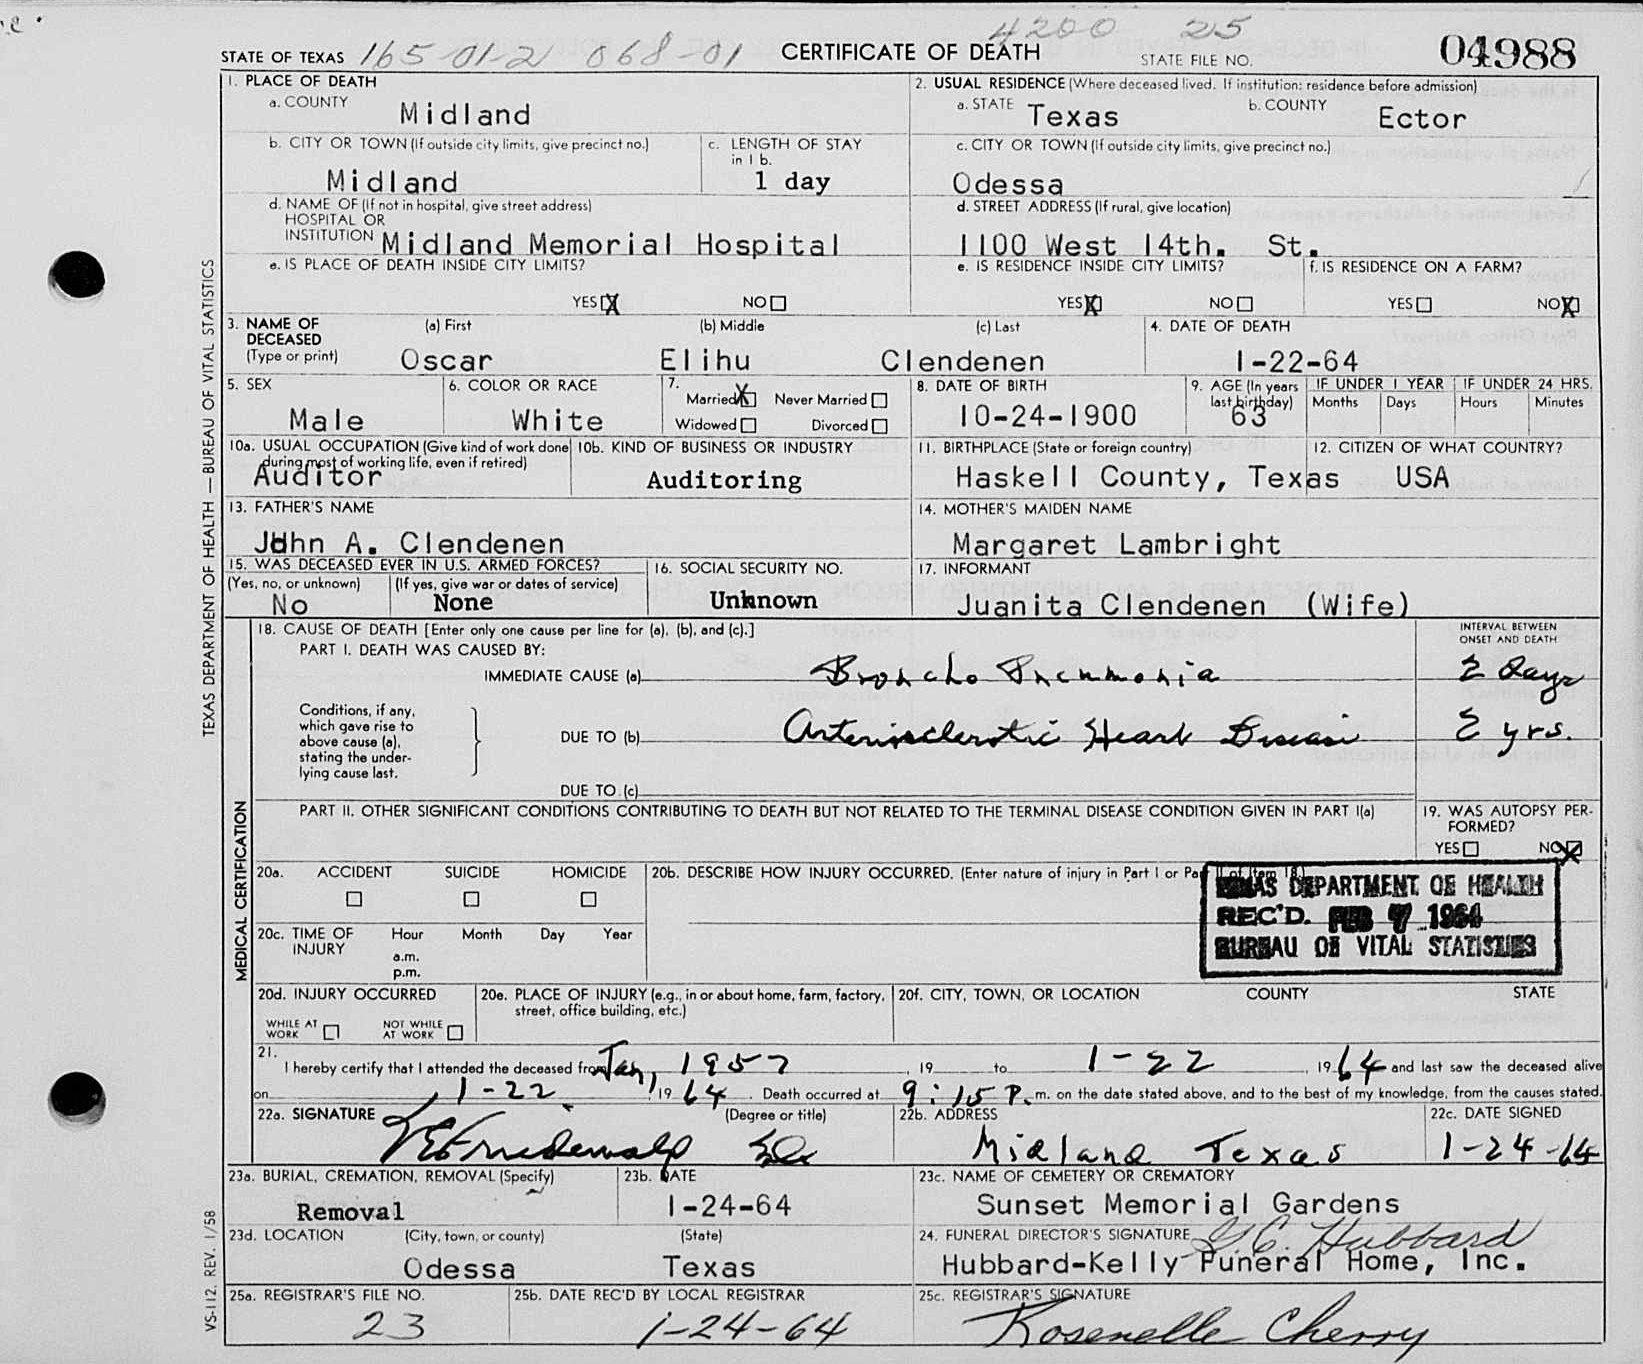 4200 25
STATE OF TEXAS 165-01-2 068-01 CERTIFICATE OF DEATH STATE FILE NO. 04988
1. PLACE OF DEATH
a. COUNTY Midland
2. USUAL RESIDENCE (Where deceased lived. If institution: residence before admission)
a. STATE Texas b. COUNTY Ector
b. CITY OR TOWN (If outside city limits, give precinct no.) Midland
c. LENGTH OF STAY in 1 b. 1 day
c. CITY OR TOWN (If outside city limits, give precinct no.) Odessa
d. NAME OF (If not in hospital, give street address)
HOSPITAL OR
INSTITUTION Midland Memorial Hospital
d. STREET ADDRESS (If rural, give location)
1100 West 14th. St.
e. IS PLACE OF DEATH INSIDE CITY LIMITS?
YES X NO
e. IS RESIDENCE INSIDE CITY LIMITS?
YES X NO
f. IS RESIDENCE ON A FARM?
YES NO X
3. NAME OF DECEASED (Type or print)
(a) First (b) Middle (c) Last
Oscar Elihu Clendenen
4. DATE OF DEATH
1-22-64
5. SEX
Male
6. COLOR OR RACE
White
7. Married X Never Married
Widowed Divorced
8. DATE OF BIRTH
10-24-1900
9. AGE (In years last birthday)
63
IF UNDER 1 YEAR
Months Days
IF UNDER 24 HRS.
Hours Minutes
10a. USUAL OCCUPATION (Give kind of work done during most of working life, even if retired)
Auditor
10b. KIND OF BUSINESS OR INDUSTRY
Auditoring
11. BIRTHPLACE (State or foreign country)
Haskell County, Texas
12. CITIZEN OF WHAT COUNTRY?
USA
13. FATHER'S NAME
John A. Clendenen
14. MOTHER'S MAIDEN NAME
Margaret Lambright
15. WAS DECEASED EVER IN U.S. ARMED FORCES?
(Yes, no, or unknown) (If yes, give war or dates of service)
No None
16. SOCIAL SECURITY NO.
Unknown
17. INFORMANT
Juanita Clendenen (Wife)
18. CAUSE OF DEATH [Enter only one cause per line for (a), (b), and (c).]
PART I. DEATH WAS CAUSED BY:
INTERVAL BETWEEN ONSET AND DEATH
IMMEDIATE CAUSE (a) Broncho Pneumonia 2 days
Conditions, if any,
which gave rise to
above cause (a),
stating the under-
lying cause last.
DUE TO (b) Arteriosclerotic Heart Disease 2 yrs.
DUE TO (c)
PART II. OTHER SIGNIFICANT CONDITIONS CONTRIBUTING TO DEATH BUT NOT RELATED TO THE TERMINAL DISEASE CONDITION GIVEN IN PART I(a)
19. WAS AUTOPSY PER-
FORMED?
YES NO X
20a. ACCIDENT SUICIDE HOMICIDE
20b. DESCRIBE HOW INJURY OCCURRED. (Enter nature of injury in Part I or Part II of Item 18.)
TEXAS DEPARTMENT OF HEALTH
REC'D. FEB 7 1964
BUREAU OF VITAL STATISTICS
20c. TIME OF INJURY Hour Month Day Year
a.m.
p.m.
20d. INJURY OCCURRED
WHILE AT WORK NOT WHILE AT WORK
20e. PLACE OF INJURY (e.g., in or about home, farm, factory, street, office building, etc.)
20f. CITY, TOWN, OR LOCATION COUNTY STATE
21.
I hereby certify that I attended the deceased from Jan, 1957, 19 to 1-22, 1964 and last saw the deceased alive
on 1-22, 1964. Death occurred at 9:15 P.m. on the date stated above, and to the best of my knowledge, from the causes stated.
22a. SIGNATURE (Degree or title)
22b. ADDRESS
Midland Texas
22c. DATE SIGNED
1-24-64
23a. BURIAL, CREMATION, REMOVAL (Specify)
Removal
23b. DATE
1-24-64
23c. NAME OF CEMETERY OR CREMATORY
Sunset Memorial Gardens
23d. LOCATION (City, town, or county) (State)
Odessa Texas
24. FUNERAL DIRECTOR'S SIGNATURE G.C. Hubbard
Hubbard-Kelly Funeral Home, Inc.
25a. REGISTRAR'S FILE NO.
23
25b. DATE REC'D BY LOCAL REGISTRAR
1-24-64
25c. REGISTRAR'S SIGNATURE
Rosenelle Cherry
TEXAS DEPARTMENT OF HEALTH — BUREAU OF VITAL STATISTICS
MEDICAL CERTIFICATION
VS-112, REV. 1/58